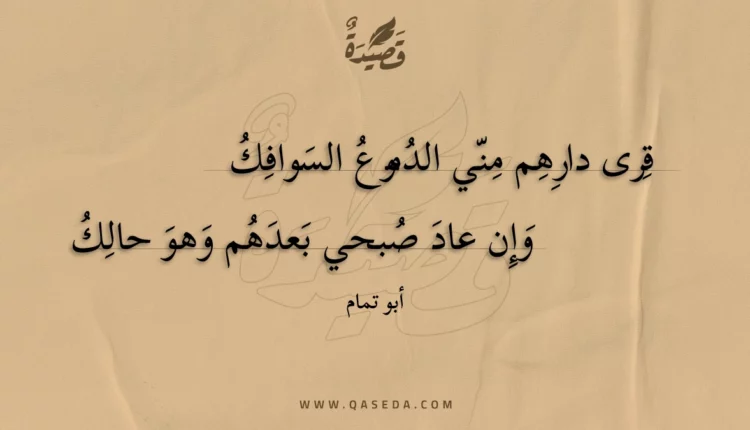 قَصِيْدَةٌ
قِرى دارِهِم مِنّي الدُموعُ السَوافِكُ
وَإِن عادَ صُبحي بَعدَهُم وَهوَ حالِكُ
أبو تمام
WWW.QASEDA.COM